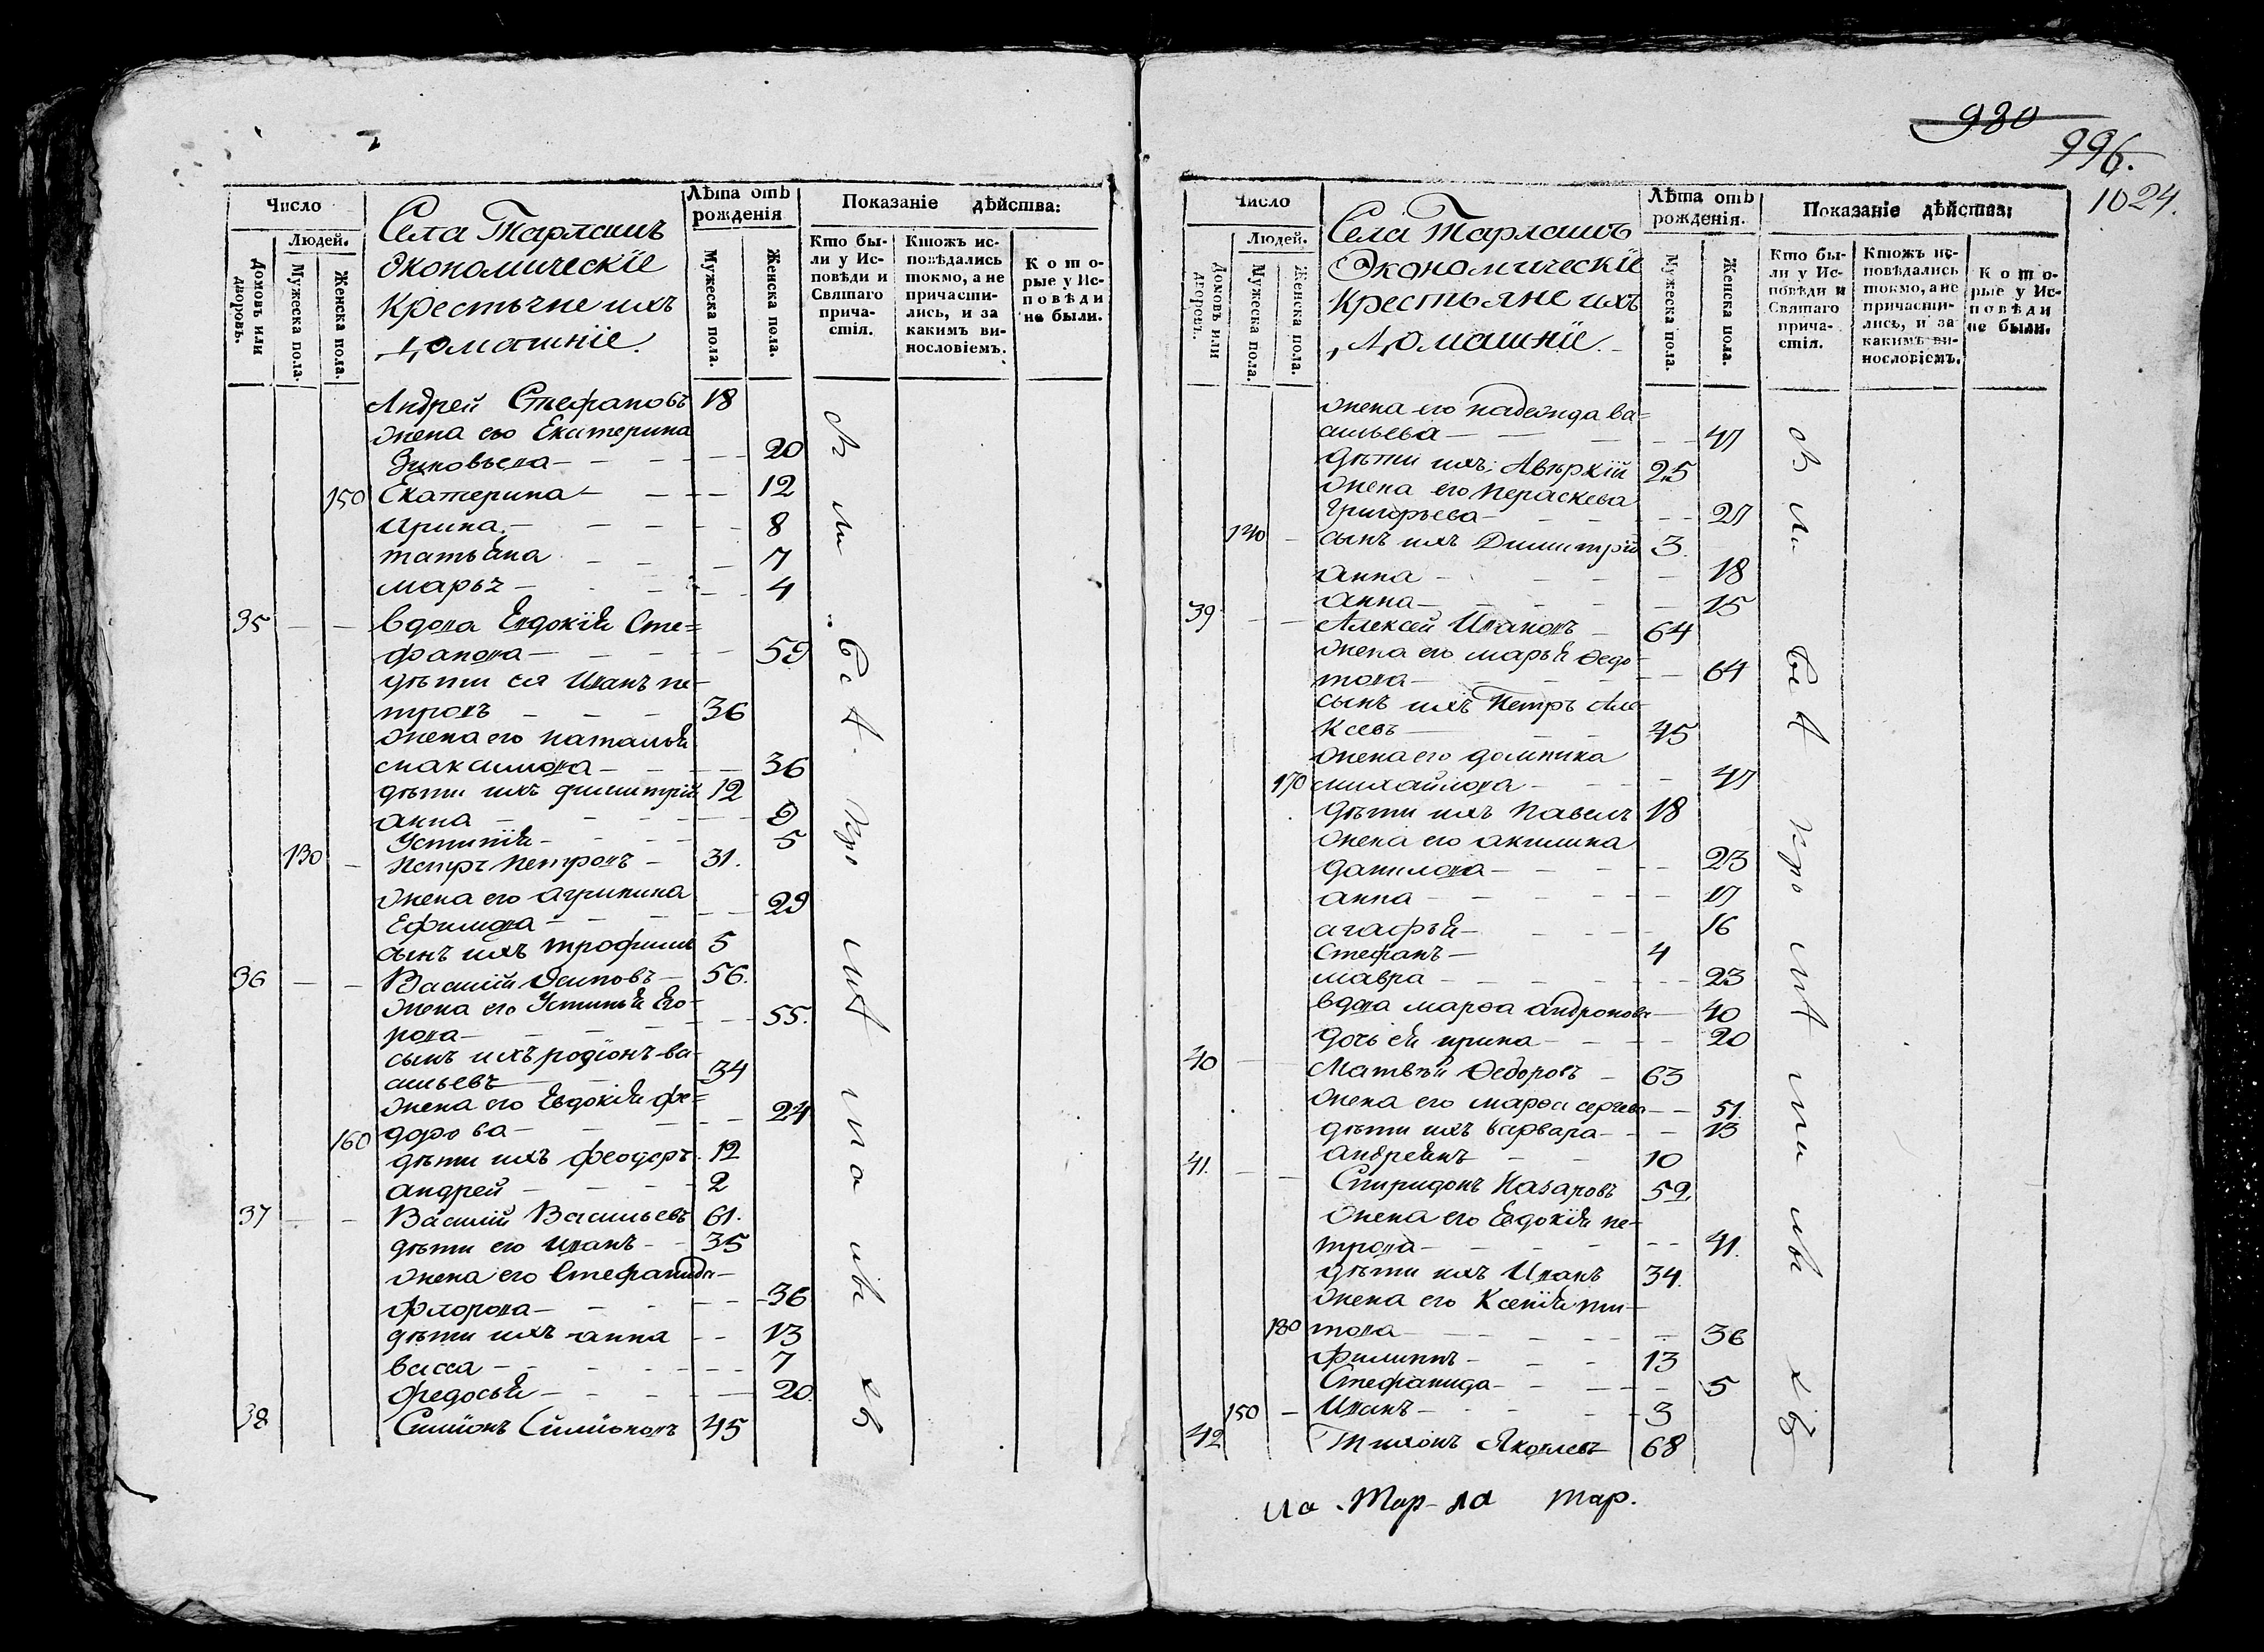 Число
Людей.
Домовъ или дворовъ.
Мужеска пола.
Женска пола.
Села Тарлашъ
экономическіе
крестьяне ихъ
домашніе.
Лѣта отъ рожденія
Мужеска пола.
Женска пола.
Показаніе дѣйства:
Кто бы-
ли у Ис-
повѣди и
Святаго
прича-
стія.
Ктожъ ис-
повѣдались
токмо, а не
причасти-
лись, и за
какимъ ви-
нословіемъ.
Кото-
рые у Ис-
повѣди
не были.
Андрей Стефановъ 18
жена его Екатерина
Зиновьева 20
150 Екатерина 12
Ирина 8
татьяна 7
марья 4
35 вдова Евдокія Сте=
фанова 59
дѣти ея Иванъ пе-
тровъ 36
жена его наталья
максимова 36
дѣти ихъ димитрій 12
анна 9
Устинія 5
130 Петръ Петровъ 31.
жена его агрипина
Ефимова 29
сынъ ихъ трофимъ 5
36 Василій Осиповъ 56.
жена его Устинья Его-
рова 55.
сынъ ихъ родіонъ ва-
сильевъ 34
жена его Евдокія фе=
160 дорова 24
дѣти ихъ феодоръ 12
андрей 2
37 Василій Васильевъ 61.
дѣти его Иванъ 35
жена его Стефанида
флорова 36
дѣти ихъ анна 13
васса 7
федосья 20.
38 Симіонъ Симіоновъ 45
930
996.
1024.
Число
Людей.
Домовъ или дворовъ.
Мужеска пола.
Женска пола.
Села Тарлашъ
Экономическіе
крестьяне ихъ
домашніе.
Лѣта отъ рожденія.
Мужеска пола.
Женска пола.
Показаніе дѣйства:
Кто бы-
ли у Ис-
повѣди и
Святаго
прича-
стія.
Ктожъ ис-
повѣдались
токмо, а не
причасти-
лись, и за
какимъ ви-
нословіемъ.
Кото-
рые у Ис-
повѣди
не были.
жена его надежда ва=
сильева 47
дѣти ихъ: Аверкій 25
жена его пераскева
Григорьева 27
140 сынъ ихъ Димитрій 3.
анна 18
анна 15
39 Алексей Ивановъ 64
жена его марья Ѳедо-
това 64
сынъ ихъ Петръ Але-
ксевъ 45
жена его домника
170 михайлова 47
дѣти ихъ Павелъ 18
жена его акилина
данилова 23
анна 17
агафья 16
Стефанъ 4
мавра 23
вдова марѳа андронова 40
дочь ея ирина 20
40 Матвѣй Ѳедоровъ 63
жена его марѳа сергева 51.
дѣти ихъ варвара 13
андреянъ 10
41. Спиридонъ Назаровъ 52.
жена его Евдокія пе-
трова 41.
дѣти ихъ Иванъ 34.
жена его Ксенія ти-
180 това 36
филиппъ 13
Стефанида 5
150 Иванъ 3
42 Тихонъ Яковлевъ 68
ла. Тар-ла тар.